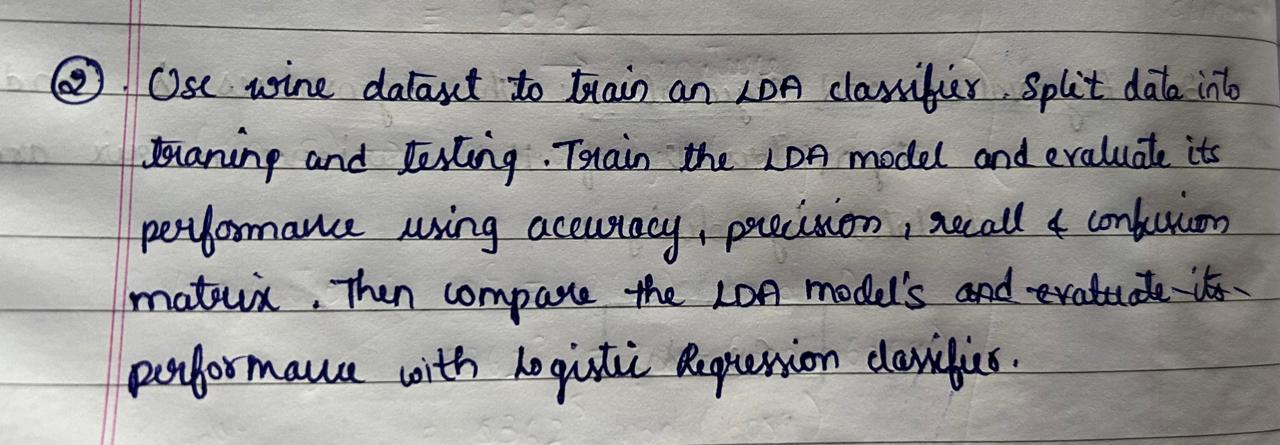 ② . Use wine dataset to train an LDA classifier. Split data into
traning and testing. Train the LDA model and evaluate its
performance using accuracy, precision, recall & confusion
matrix. Then compare the LDA model's and evaluate its
performance with Logistic Regression classifier.